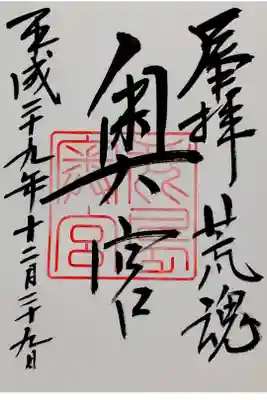 拝 荒魂
奥宮
平成二十九年十二月二十九日